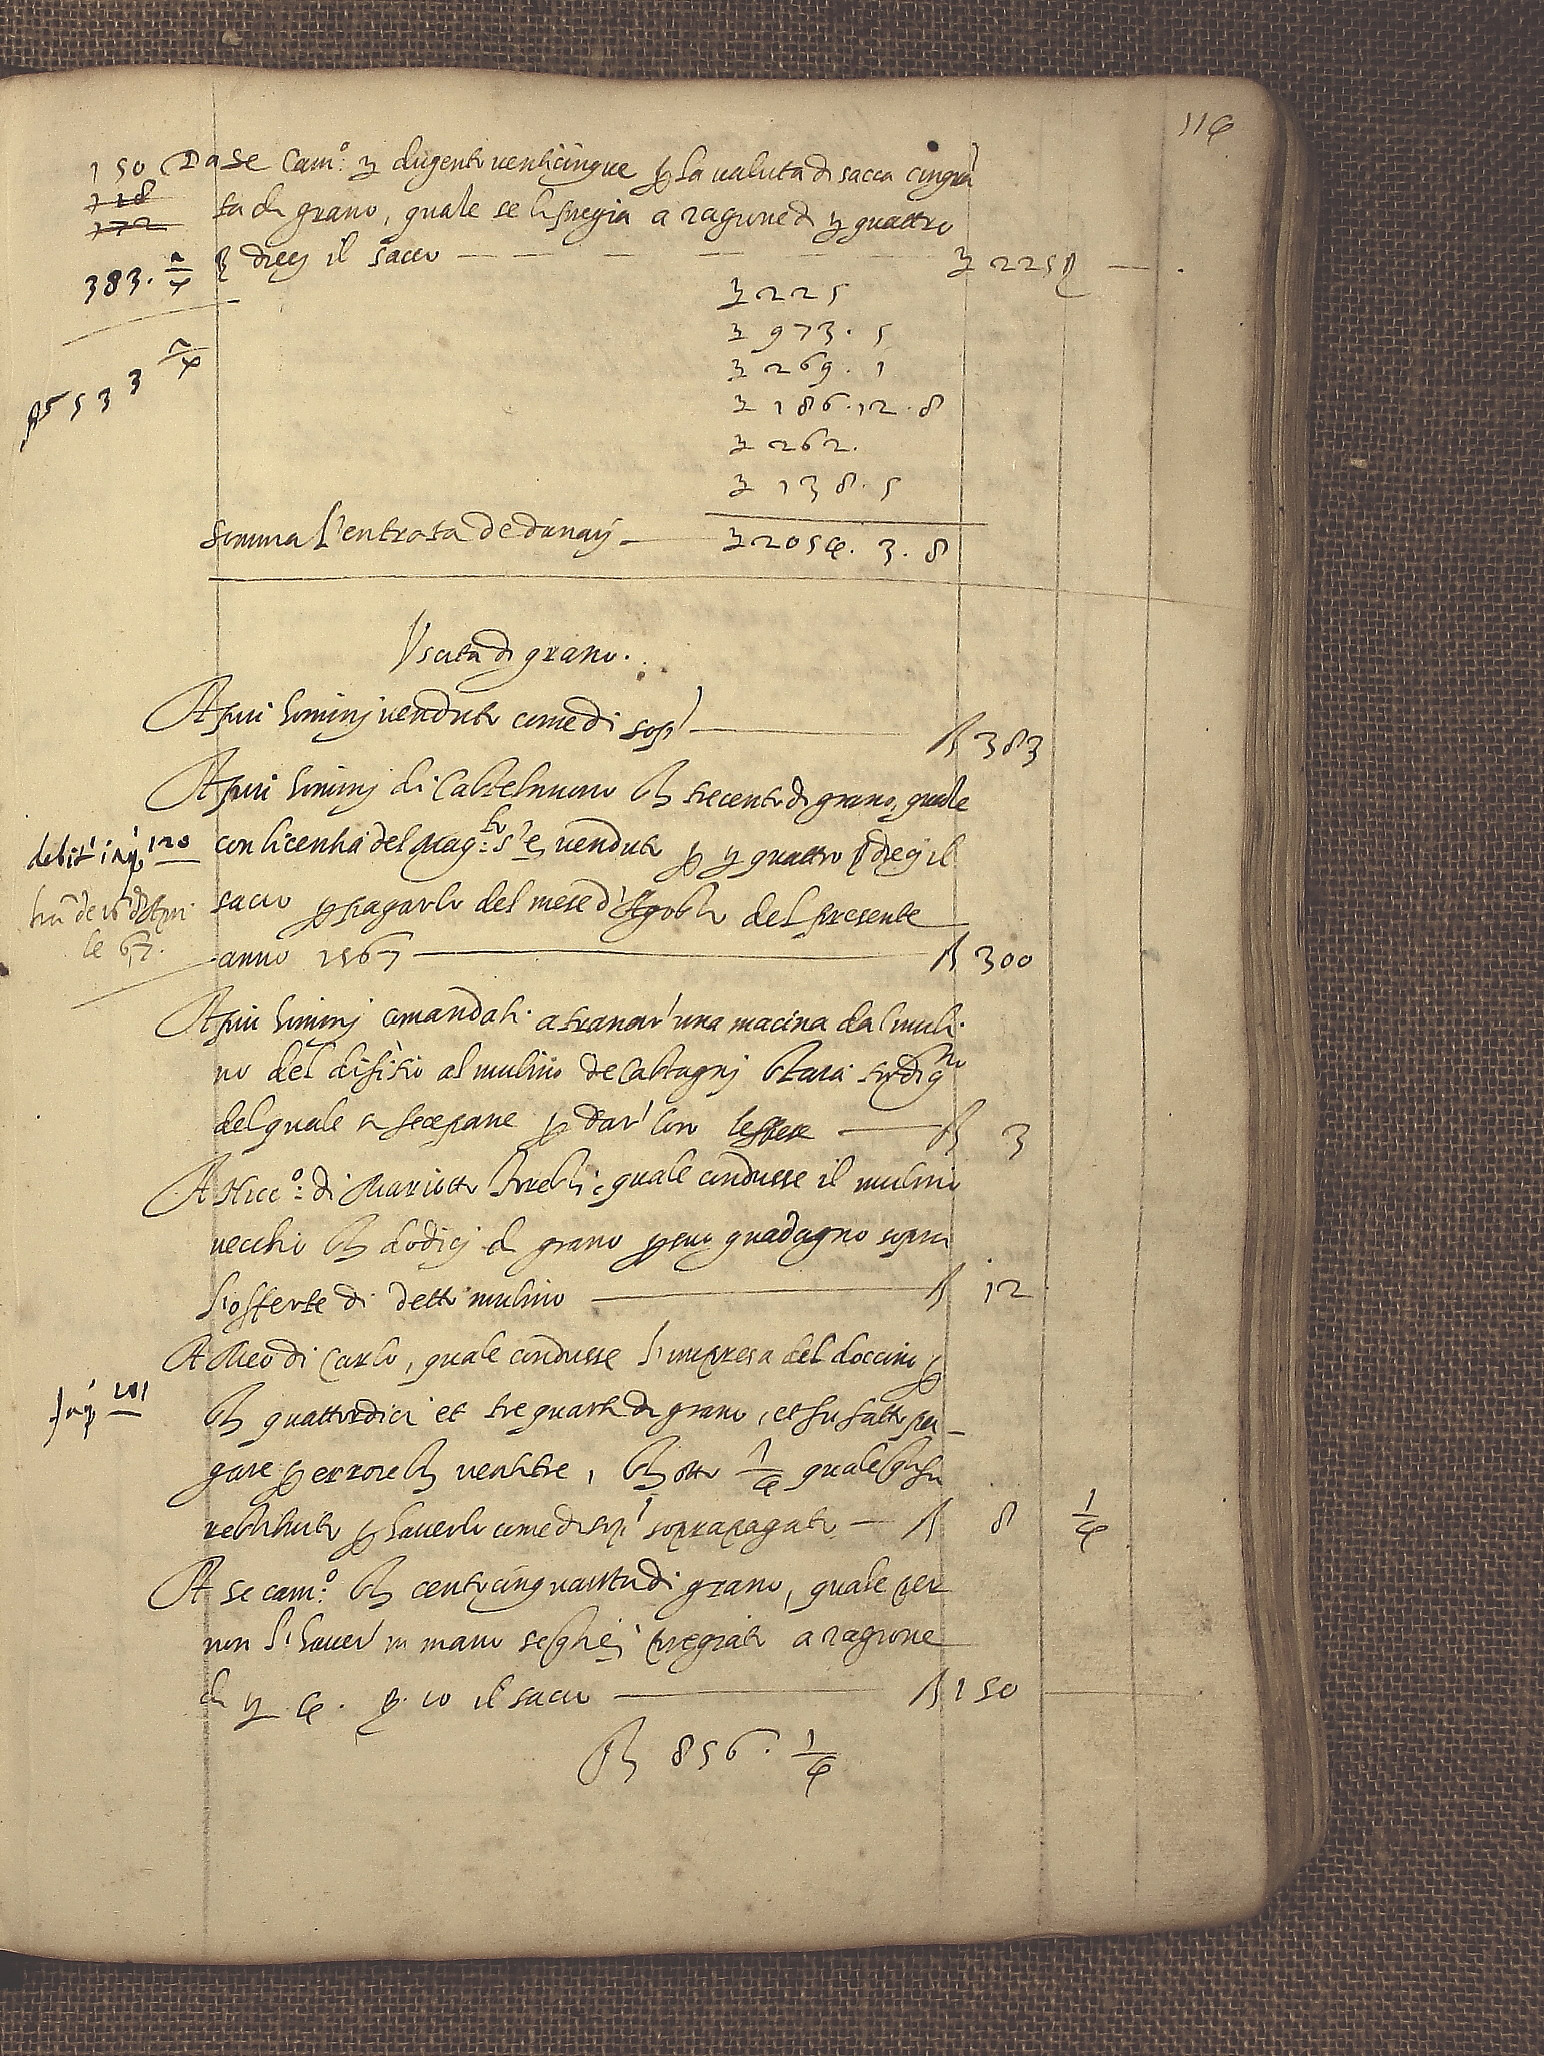 114
150 Da Se Cam.o £ dugento venticinque p la valuta di sacca cinquan
ta di grano, quale se li pregia a ragione di £ quattro
ß dieci il sacco £ 225 ß — .
128
172
383. 1/4
533 1/4
£ 225
£ 973. 5
£ 269. 1
£ 186. 12. 8
£ 262.
£ 138. 5
Somma l'entrata de danaij £ 2054. 3. 8
Uscita di grano.
A piu homini venduto come di sop.a 383
A piu homini di Castelnuovo st trecento di grano, quale
con licentia del Mag.to s'e venduto p £ quattro ß dieci il
sacco p pagarlo del mese d'Agosto del presente
anno 1567 300
debit.i in q.o 120
de 16 d'Apri
le 67.
A piu homini comandati a tranar' una macina dal muli
no del difitio al mulino de Castagnj staia tre di g.no
del quale si fece pane p dar' loro 3
A Nicc.o di Mariotto quale condusse il mulino
vecchio st dodicj di grano p suo guadagno sopra
l'offerte di detto mulino 12
A Meo di Carlo, quale condusse l'impresa del doccino p
st quattordici et tre quarti di grano, et fu fatto pa-
gare p errore st ventitre, st otto 1/4 quale gli fu
restituito p haverlo come di sop.a soprapagato 8 1/4
in q.o 101
A Se Cam.o st centocinquanta di grano, quale per
non l'haver' in mano se gli e pregiato a ragione
di £ 4. ß 10 il sacco 150
st 856. 1/4